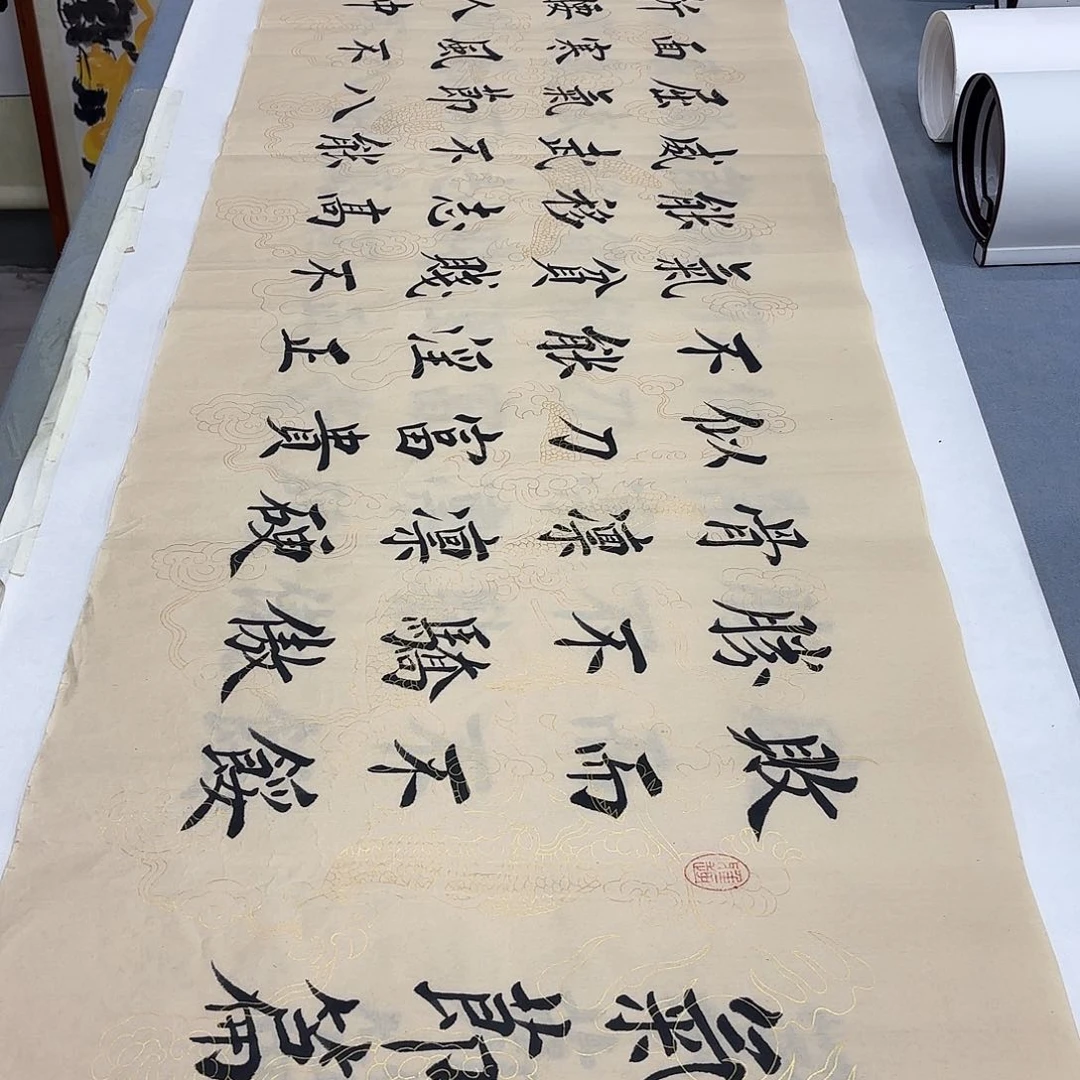 氣節篇
敗而不餒
勝不驕傲
骨凜凜硬
似刀富貴
不能淫正
氣貧賤不
能移志高
威武不能
屈氣節八
面寒風不
折腰人